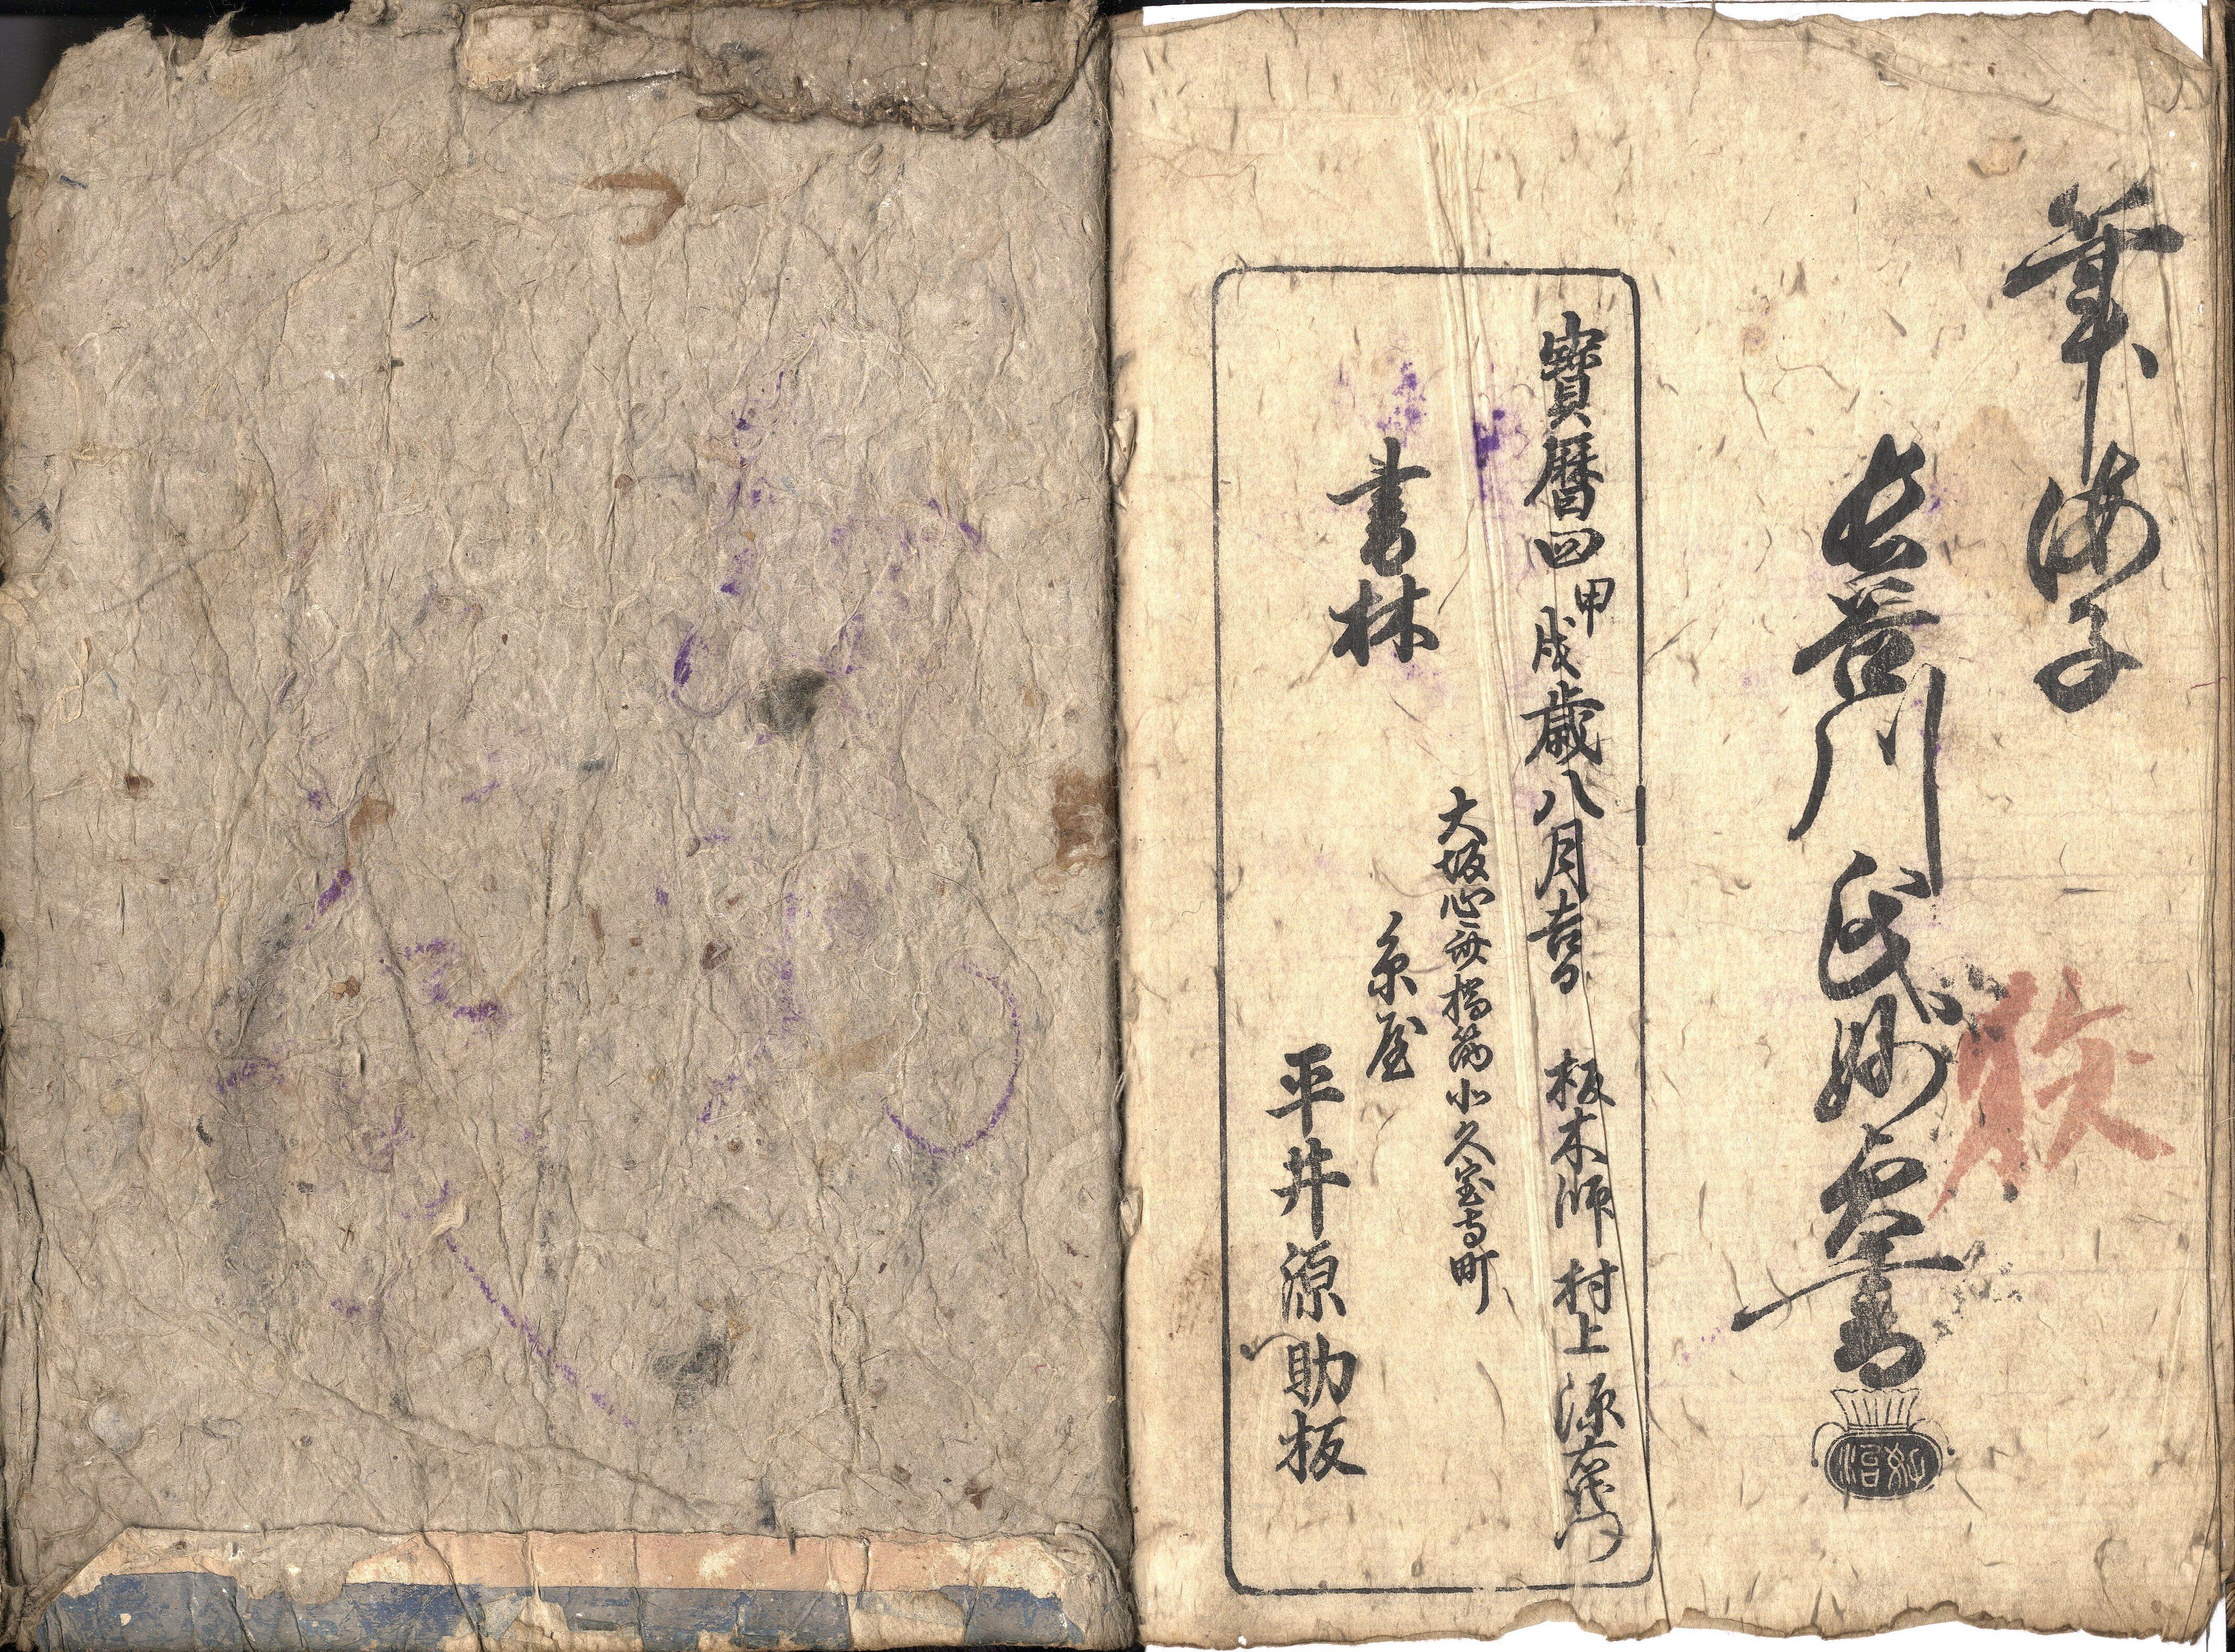 筆海子
長谷川氏妙貞書
寶暦四甲戌歳八月吉日 板木師 村上源右衛門
大坂心斎橋筋北久宝寺町
書林 糸屋
平井源助板